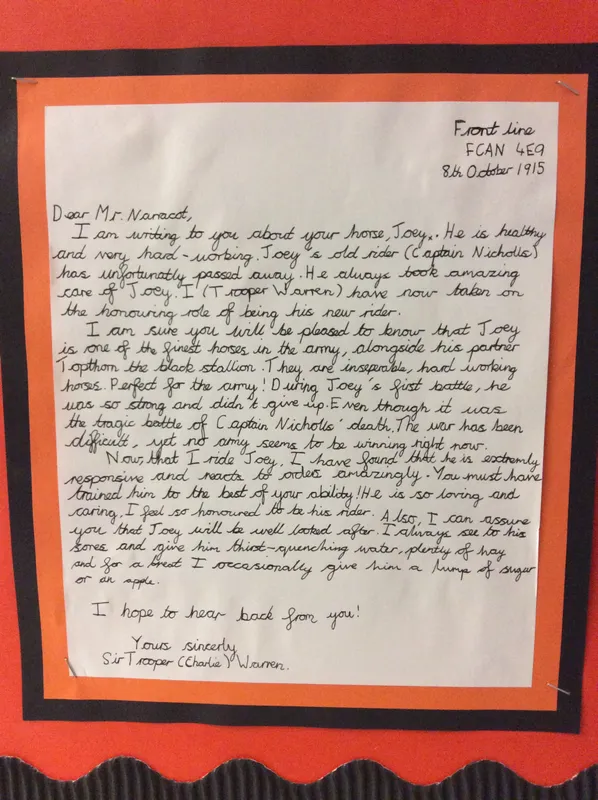 Front line
FCAN 4E9
8th October 1915
Dear Mr. Naracot,
I am writing to you about your horse, Joey. He is healthy
and very hard-working. Joey's old rider (Captain Nicholls)
has unfortunatly passed away. He always took amazing
care of Joey. I (Trooper Warren) have now taken on
the honouring role of being his new rider.
I am sure you will be pleased to know that Joey
is one of the finest horses in the army, alongside his partner
Topthorn the black stallion. They are inseperable, hard working
horses. Perfect for the army! During Joey's first battle, he
was so strong and didn't give up. Even though it was
the tragic battle of Captain Nicholls' death. The war has been
difficult, yet no army seems to be winning right now.
Now, that I ride Joey, I have found that he is extremly
responsive and reacts to orders amazingly. You must have
trained him to the best of your ability! He is so loving and
caring, I feel so honoured to be his rider. Also, I can assure
you that Joey will be well looked after. I always see to his
sores and give him thirst-quenching water, plenty of hay
and for a treat I occasionally give him a lump of sugar
or an apple.
I hope to hear back from you!
Yours sincerly
Sir Trooper (Charlie) Warren.